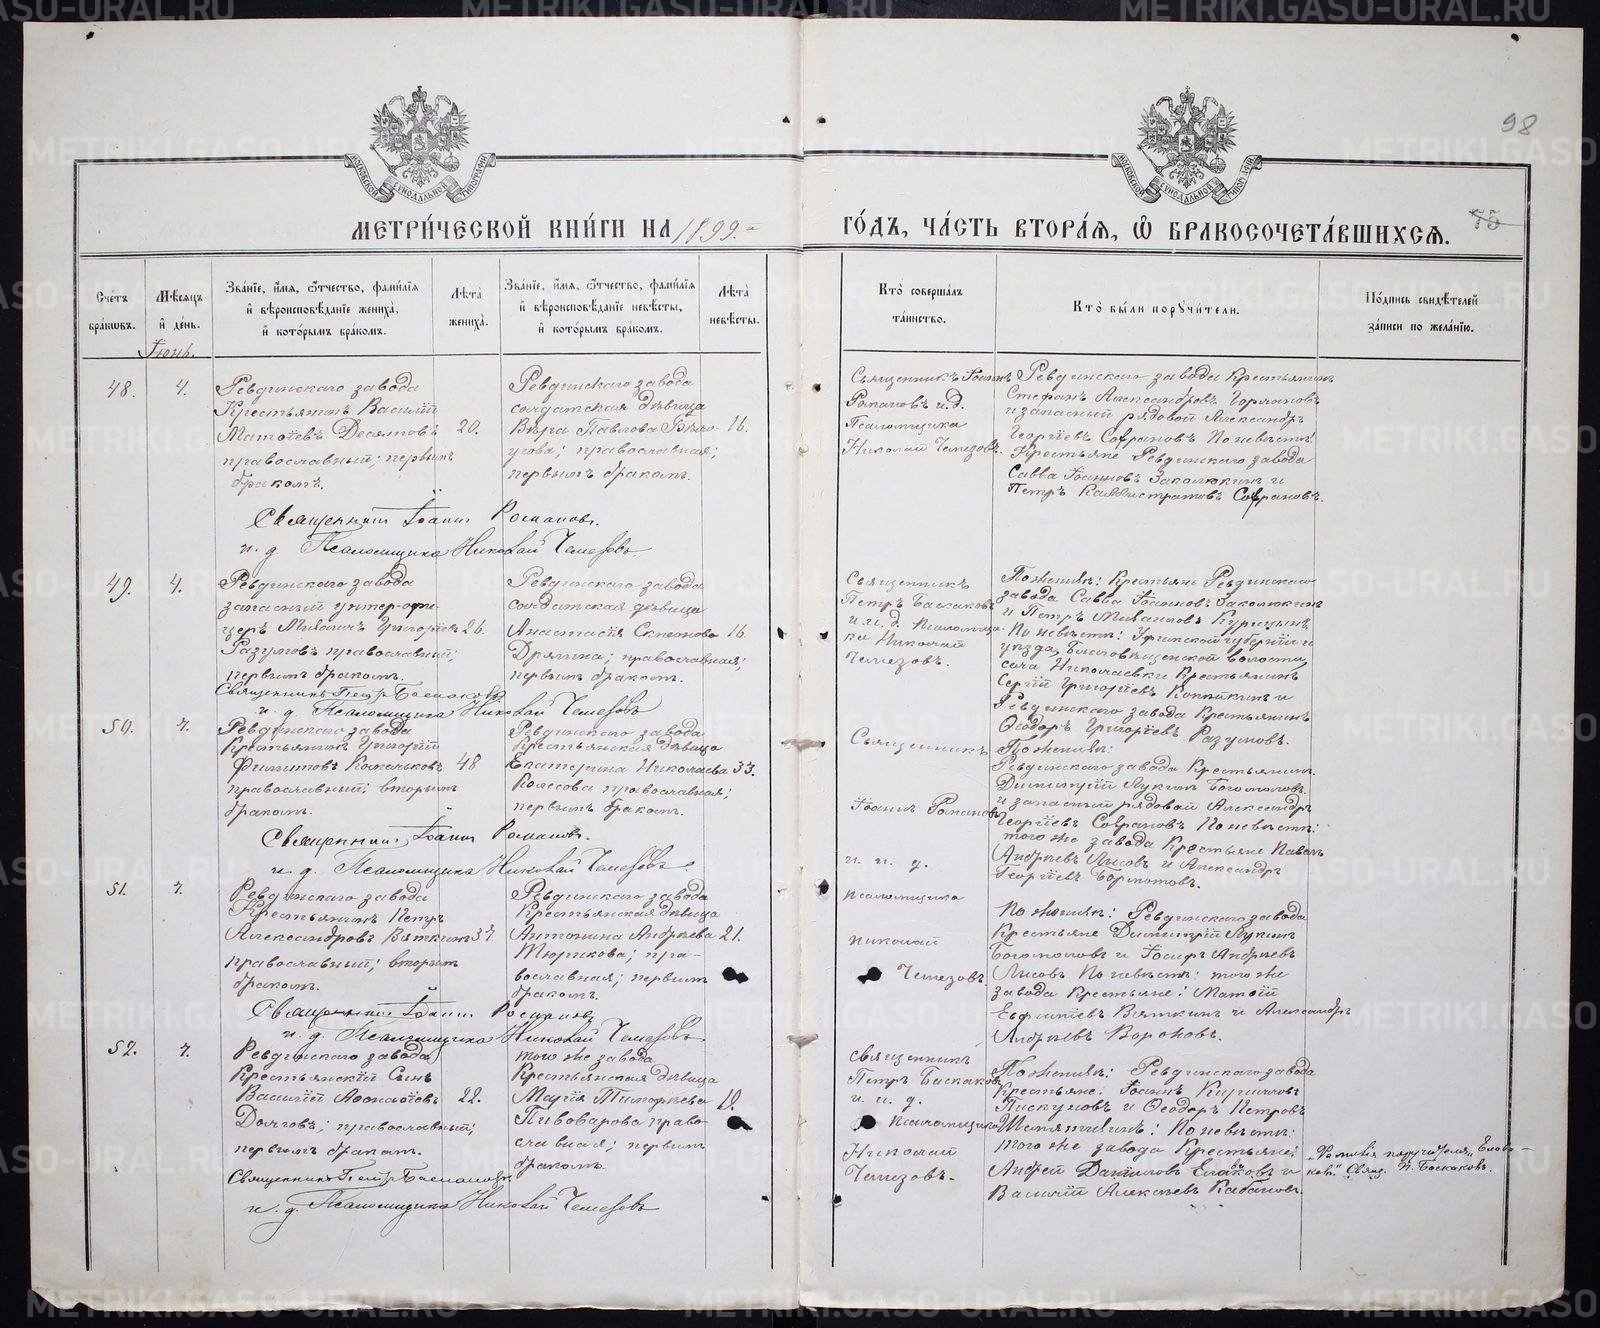 98
МЕТРИ́ЧЕСКОЙ КНИ́ГИ НА 1899.й ГО́ДЪ, ЧА́СТЬ ВТОРА́Я, Ѡ БРАКОСОЧЕТА́ВШИХСЯ.
75
Сче́тъ бра́ковъ.
Мѣ́сяцъ и де́нь.
Зва́нїе, и́мя, ѻ́тчество, фами́лїя
и вѣроисповѣ́данїе жениха̀,
и кото́рымъ бра́комъ.
Лѣ́та жениха̀.
Зва́нїе, и́мя, ѻ́тчество, фами́лїя
и вѣроисповѣ́данїе невѣ́сты,
и кото́рымъ бра́комъ.
Лѣ́та невѣ́сты.
Кто̀ соверша́лъ та́инство.
Кто̀ бы́ли порꙋчи́тели.
По́дпись свидѣ́телей
за́писи по жела́нїю.
Іюнь.
48.
4.
Ревдинскаго завода
Крестьянинъ Василій
Матѳіевъ Десятовъ
православный; первымъ
бракомъ.
20.
Ревдинскаго завода
солдатская дѣвица
Вѣра Павлова
православная;
первымъ бракомъ.
16.
Священникъ Іоаннъ
Романовъ и.д.
Псаломщика
Николай Чемезовъ.
Ревдинскаго завода Крестьянинъ
Стефанъ Александровъ Горлановъ
и запасный рядовой Александръ
Георгіевъ Софроновъ По невѣстѣ:
Крестьяне Ревдинскаго завода
Савва Іоанновъ Заколюкинъ и
Петръ Каллистратовъ Софроновъ.
Священникъ Іоаннъ Романовъ.
и. д. Псаломщика Николай Чемезовъ
49.
4.
Ревдинскаго завода
запасный унтер-офи-
церъ Михаилъ Григоріевъ
Разумовъ православный;
первымъ бракомъ.
26.
Ревдинскаго завода
солдатская дѣвица
Анастасія Симеонова
Дрягина; православная;
первымъ бракомъ.
16
Священникъ
Петръ Баскаковъ
и и. д. Псаломщи-
ка Николай
Чемезовъ.
По женихѣ: Крестьяне Ревдинскаго
завода Савва Іоанновъ Заколюкинъ
и Петръ Михаиловъ Курицынъ
По невѣстѣ: Уфимской губерніи и
уѣзда, Благовѣщенской волости,
села Николаевки Крестьянинъ
Сергій Григоріевъ и
Ревдинскаго завода Крестьянинъ
Ѳеодоръ Григоріевъ Разумовъ.
Священникъ Петръ Баскаковъ
и. д. Псаломщика Николай Чемезовъ
50.
4.
Ревдинскаго завода
Крестьянинъ Григорій
Филиповъ
православный; вторымъ
бракомъ.
48
Ревдинскаго завода
Крестьянская дѣвица
Екатерина Николаева
Колесова православная;
первымъ бракомъ.
33.
Священникъ
Іоаннъ Романовъ
и. и. д.
псаломщика
Николай
Чемезовъ
По женихѣ:
Ревдинскаго завода Крестьянинъ
Димитрій Лукинъ Богомоловъ
и запасный рядовой Александръ
Георгіевъ Софроновъ По невѣстѣ:
того же завода Крестьяне Павелъ
Андреевъ Лисовъ и Александръ
Георгіевъ Бормотовъ.
Священникъ Іоаннъ Романовъ.
и. д. Псаломщика Николай Чемезовъ.
51.
4.
Ревдинскаго завода
Крестьянинъ Петръ
Александровъ Вяткинъ
православный; вторымъ
бракомъ.
37.
Ревдинскаго завода
Крестьянская дѣвица
Антонина Андреева
Тюрикова; пра-
вославная; первымъ
бракомъ.
21.
По женихѣ: Ревдинскаго завода
Крестьяне Димитрій Лукинъ
Богомоловъ и Іосифъ Андреевъ
Лисовъ По невѣстѣ: того же
завода Крестьяне: Матѳій
Евфиміевъ Вяткинъ и Александръ
Андреевъ Вороновъ.
Священникъ Іоаннъ Романовъ
и. д. Псаломщика Николай Чемезовъ
52.
4.
Ревдинскаго завода
Крестьянскій Сынъ
Василій Аѳонасіевъ
Долговъ; православный;
первымъ бракомъ.
22.
того же завода
Крестьянская дѣвица
Марія Тимоѳеева
Пивоварова право-
славная; первымъ
бракомъ.
19.
Священникъ
Петръ Баскаковъ
и. и. д.
псаломщика
Николай
Чемезовъ.
По женихѣ: Ревдинскаго завода
Крестьяне: Іоаннъ Кирилловъ
Пискуновъ и Ѳеодоръ Петровъ
По невѣстѣ:
того же завода Крестьяне:
Андрей Даниловъ Елаховъ и
Василій Алексѣевъ Кабановъ.
Священникъ Петръ Баскаковъ
и. д. Псаломщика Николай Чемезовъ
METRIKI.GASO-URAL.RU